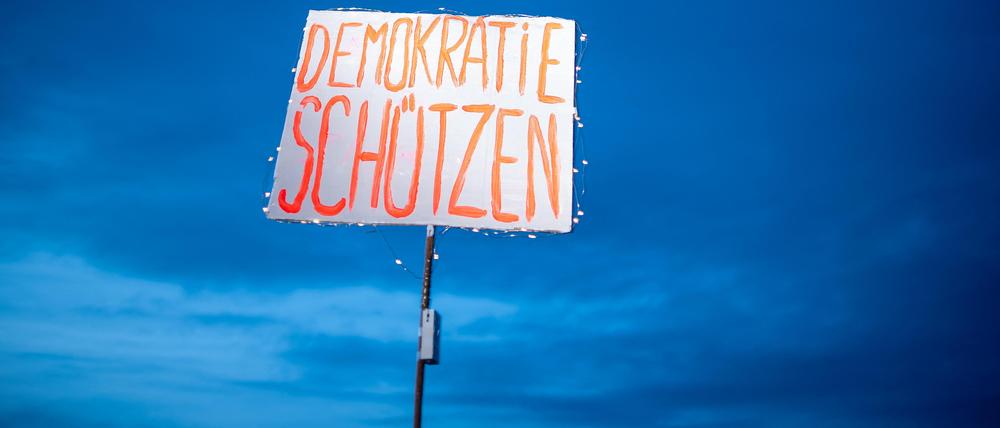 DEMOKRATiE
SCHÜTZEN